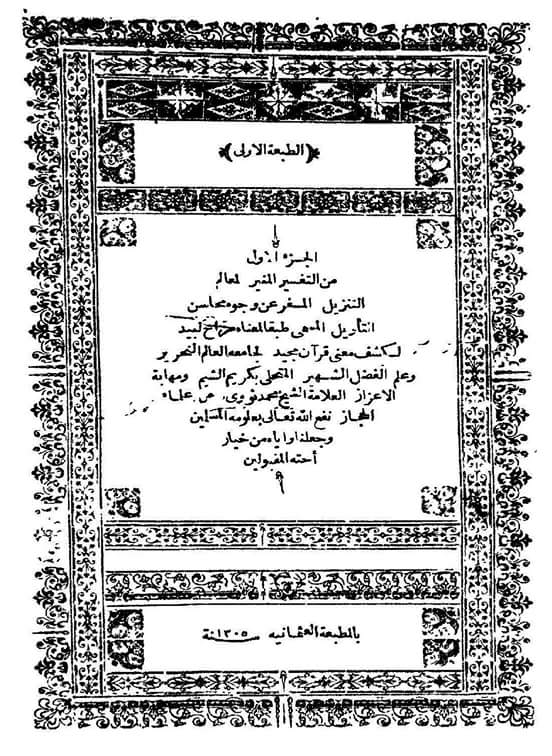 ﴿الطبعة الاولى﴾
الجزء الاول
من التفسير المنير لمعالم
التنزيل المسفر عن وجوه محاسن
التأويل المسمى طبقا لمعناه مراح لبيد
لكشف معنى قرآن مجيد لجامعه العالم النحرير
وعلم الفضل الشهير المتحلى بكريم الشيم ومهابة
الاعزاز العلامة الشيخ محمد نووى من علماء
الحجاز نفع الله تعالى بعلومه المسلمين
وجعلنا واياه من خيار
أحبته المقبولين
بالمطبعة العثمانيه سنة ١٣٠٥